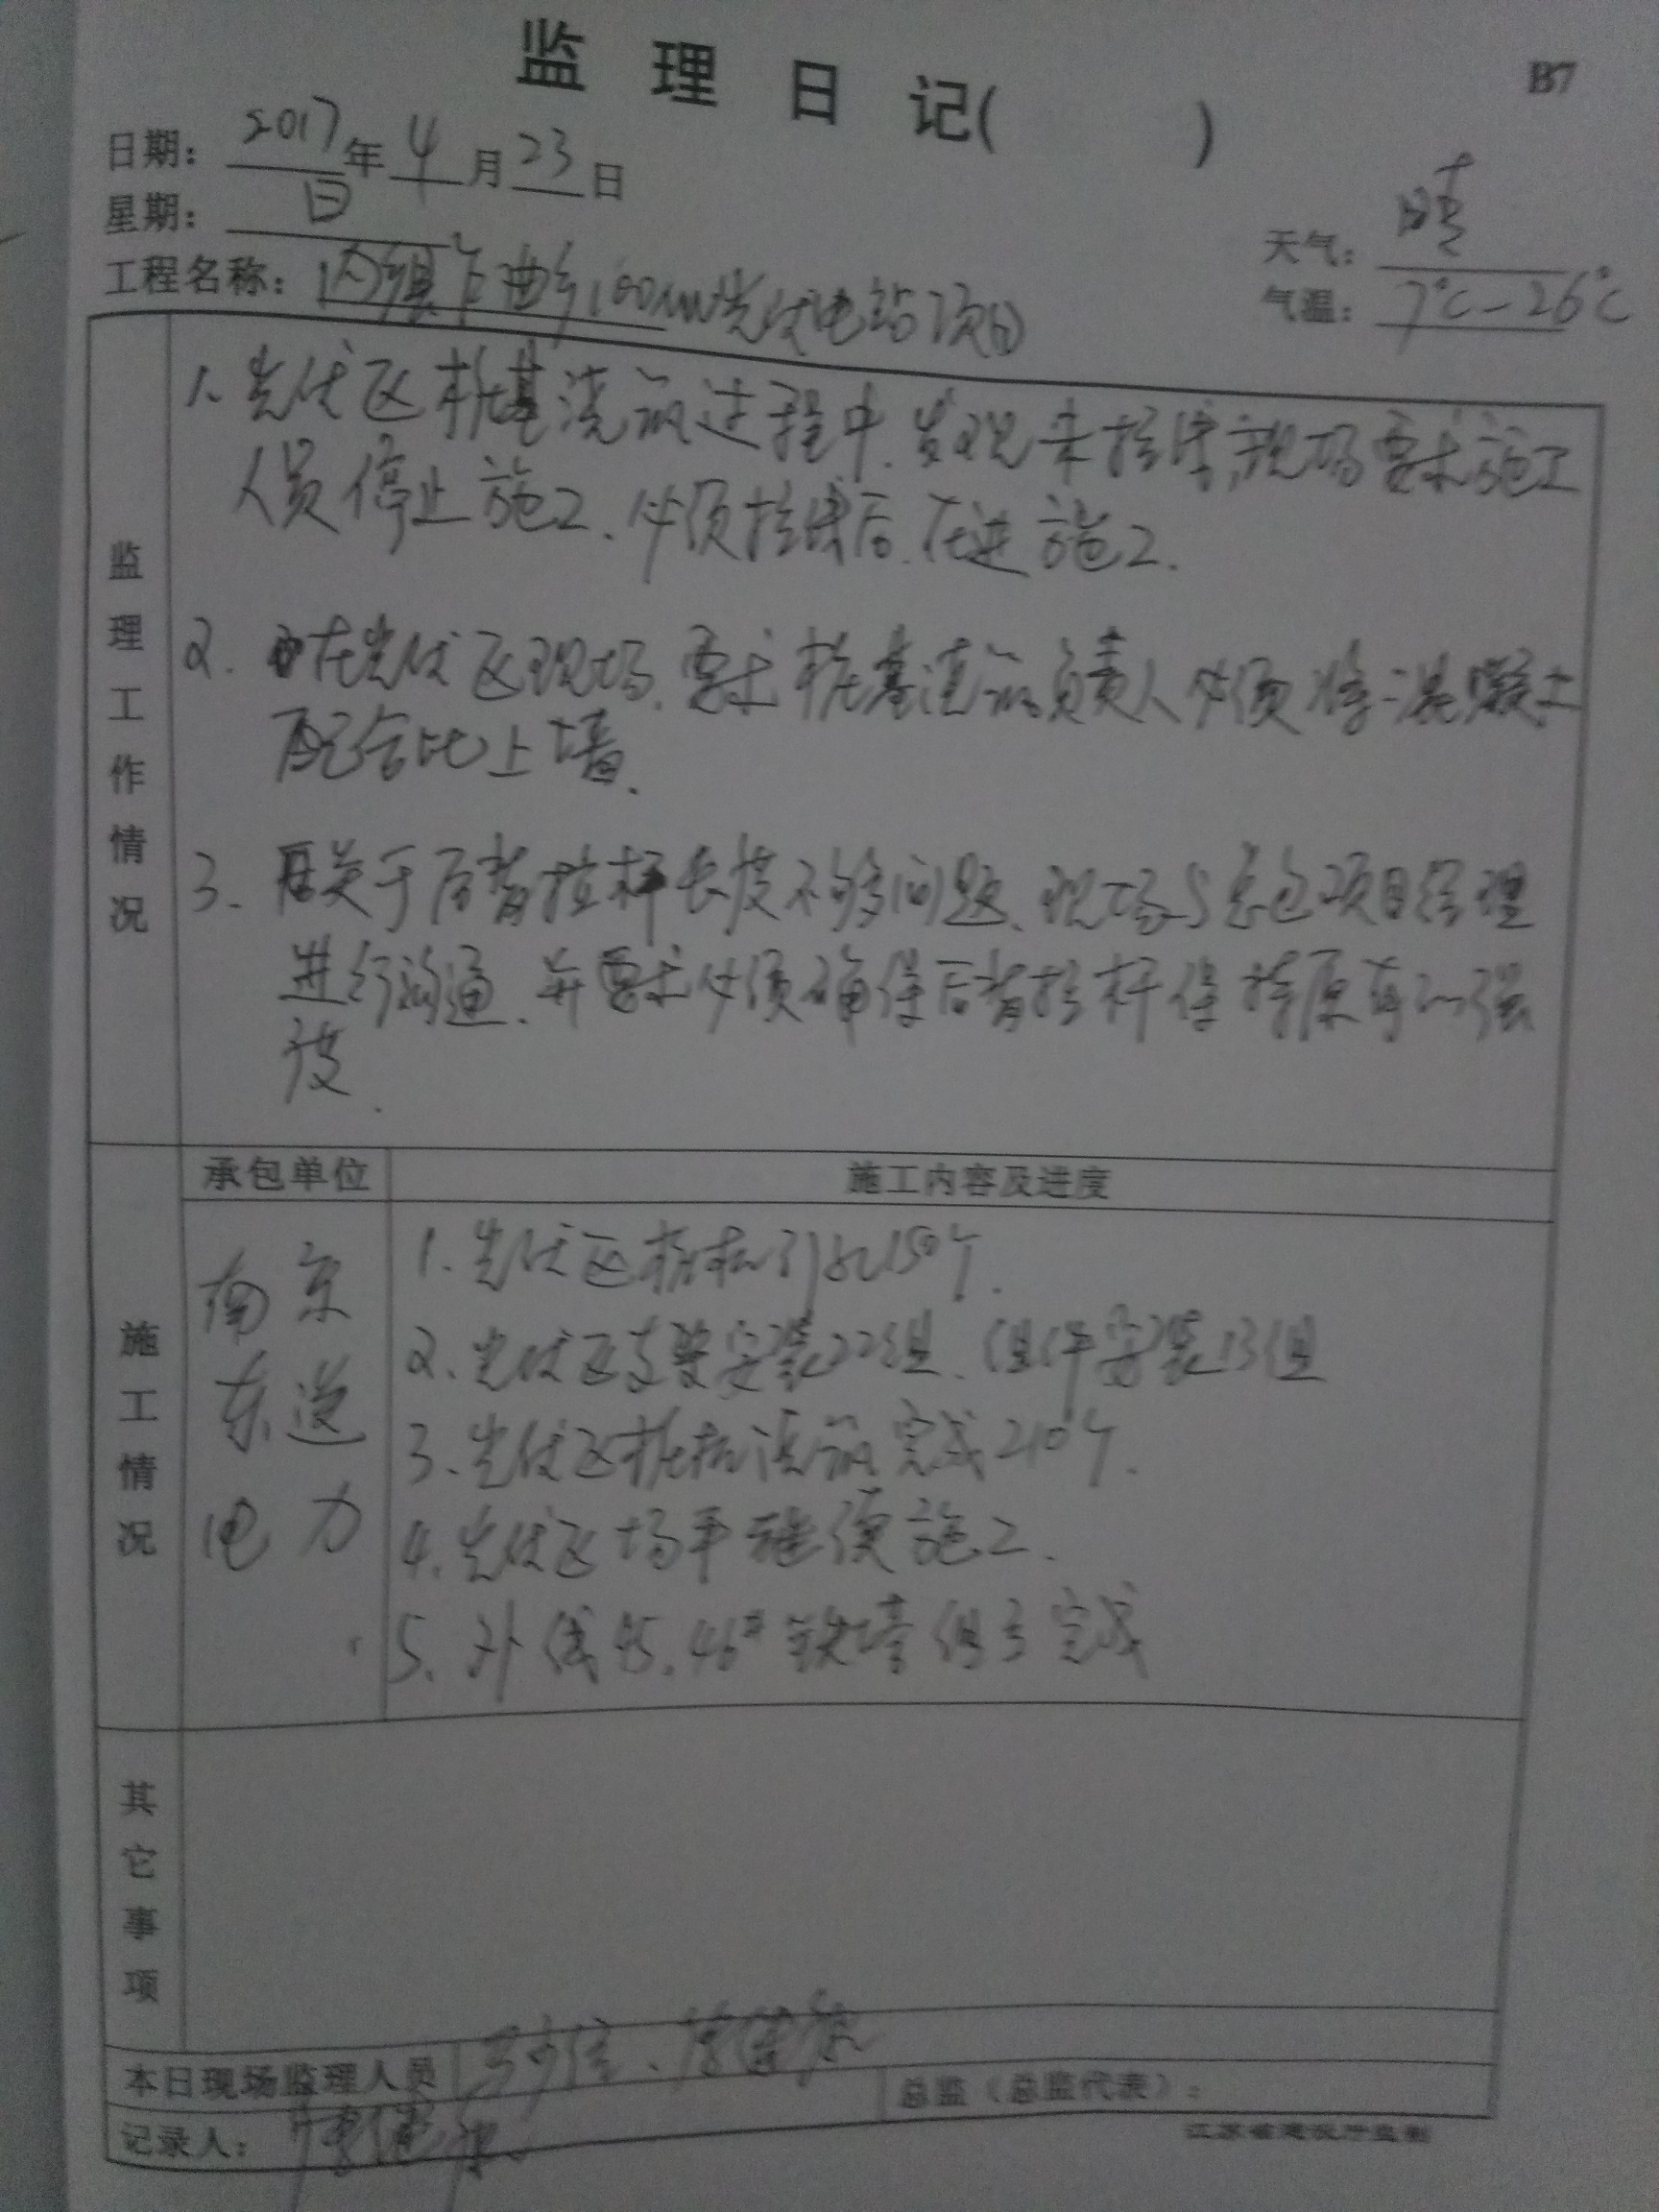 监理日记(	)
B7
日期：2017年4月23日
星期：日
天气：晴
工程名称：内乡县乍曲乡100MW光伏电站项目
气温：7℃-26℃
监理工作情况
1、光伏区桩基浇筑过程中，发现未拉线，现场要求施工
人员停止施工、必须拉线后，在进施工.
2. 在光伏区现场，要求桩基浇筑负责人必须将混凝土
配合比上墙.
3. 关于后背拉杆长度不够问题、现场与总包项目经理
进行沟通、并要求必须确保后背拉杆保持原有的强
度.
承包单位
施工内容及进度
施工情况
南京
东送
电力
1.光伏区桩机引孔150个.
2、光伏区支架安装22组、组件安装13组
3、光伏区桩机浇筑完成210个.
4.光伏区场平继续施工.
5、外线45.46#铁塔组立完成
其它事项
本日现场监理人员
总监（总监代表）：
记录人：
江苏省建设厅监制